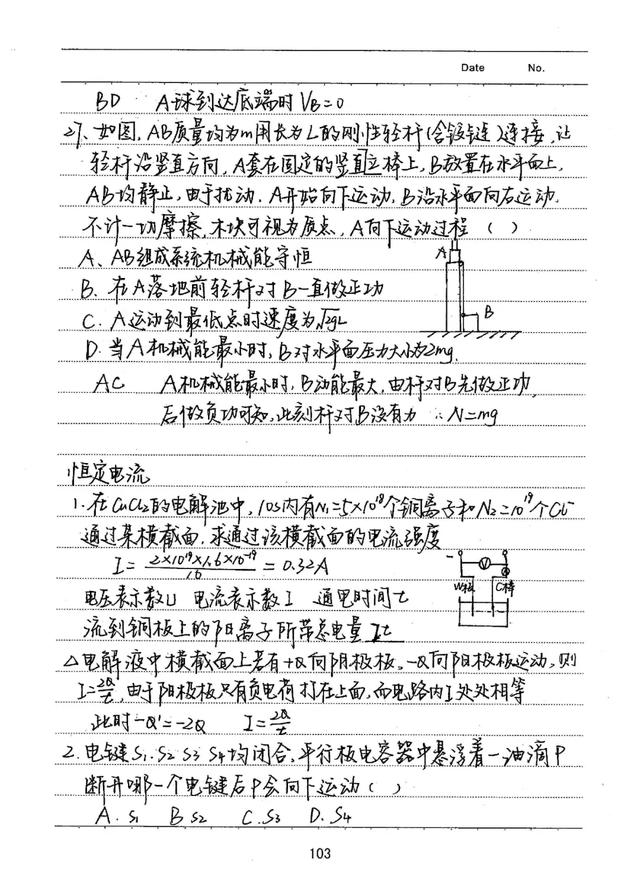 Date No.
BD A球到达底端时 VB=0
27、如图,AB质量均为m用长为L的刚性轻杆(含铰链)连接,让
轻杆沿竖直方向,A套在固定的竖直立棒上,B放置在水平面上,
AB均静止,由于扰动,A开始向下运动,B沿水平面向右运动.
不计一切摩擦,木块可视为质点,A向下运动过程 ( )
A、AB组成系统机械能守恒
A
B. 在A落地前轻杆对B一直做正功
B
C. A运动到最低点时速度为√2gL
D. 当A机械能最小时,B对水平面压力大小为2mg.
AC A机械能最小时,B动能最大,由杆对B先做正功,
后做负功可知,此刻杆对B没有力 ∴N=mg
恒定电流
1.在CuCl2的电解池中,10s内有N1=5×10¹⁸个铜离子和N2=10¹⁹个Cl⁻
通过某横截面,求通过该横截面的电流强度
I=2×10¹⁹×1.6×10⁻¹⁹/10=0.32A
- V
C棒
电压表示数U 电流表示数I 通电时间t
流到铜板上的阳离子所带总电量 It
△电解液中横截面上若有+Q向阴极板,-Q向阳极板运动,则
I=2Q/t,由于阳极板只有负电荷打在上面,而电路内I处处相等
此时-Q'=-2Q I=2Q/t
2.电键S1.S2 S3 S4均闭合,平行板电容器中悬浮着一油滴P
断开哪一个电键后P会向下运动( )
A. S1 B S2 C.S3 D. S4
103